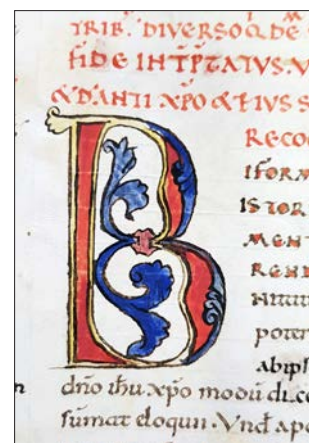 TRIB. DIVERSOQ DE
FIDE INTPTATVS. V
Q̄ D ANTI XPO Q̄ EIVS S
B RECO
IFORM
ISTOR
MENT
REND
poter
abips
dn̄o ih̄u xp̄o modū di.ce
sumat eloqun. Vnd̄ apo